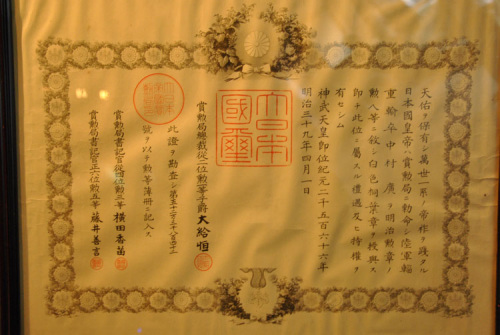 天佑ヲ保有シ萬世一系ノ帝祚ヲ踐タル
日本國皇帝ハ賞勲局ノ勅命シ陸軍輜
重輸卒中村廣ヲ明治勲章ノ
勲八等ニ敍シ白色桐葉章ヲ授與ス
即チ此位ニ屬スル禮遇及ヒ特權ヲ
有セシム
神武天皇即位紀元二千五百六十六年
明治三十九年四月一日
大日本國璽
賞勲局總裁從二位勲一等子爵大給恒
此證ヲ勘査シ第五十三万三千八百
號ヲ以テ勲等簿冊ニ記入ス
賞勲局書記官從四位勲三等横田香苗
賞勲局書記官正六位勲五等藤井善言